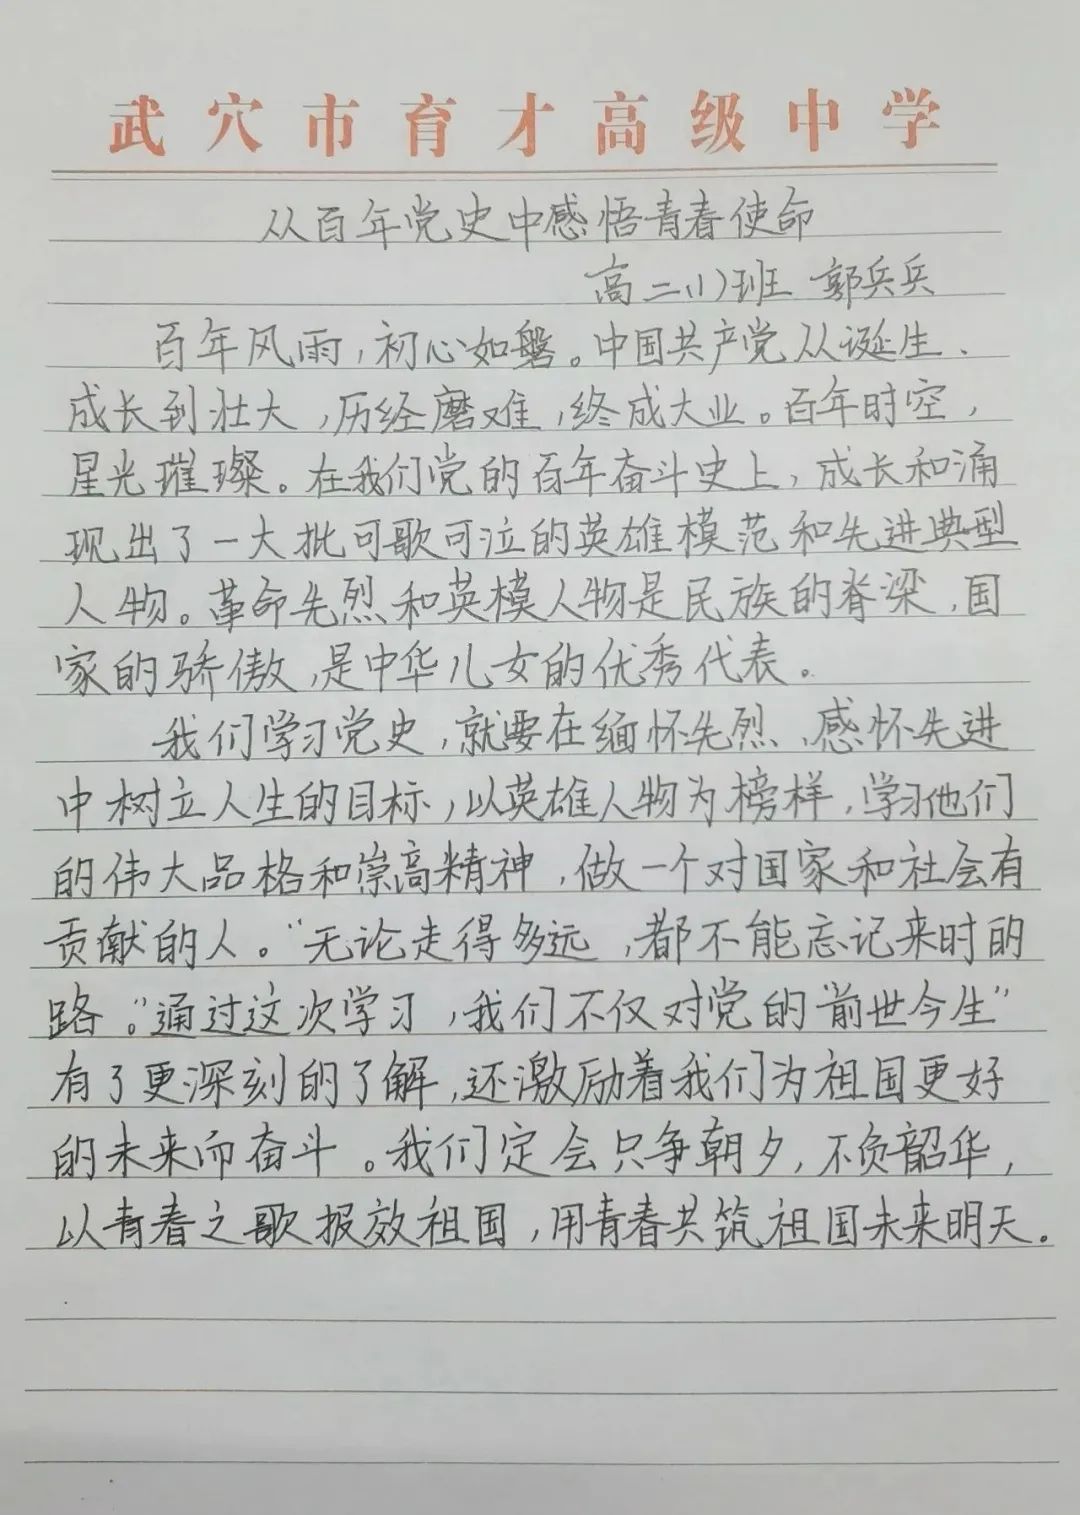 武穴市育才高级中学
从百年党史中感悟青春使命
高二(1)班 郭兵兵
百年风雨,初心如磐。中国共产党从诞生、
成长到壮大,历经磨难,终成大业。百年时空,
星光璀璨。在我们党的百年奋斗史上,成长和涌
现出了一大批可歌可泣的英雄模范和先进典型
人物。革命先烈和英模人物是民族的脊梁,国
家的骄傲,是中华儿女的优秀代表。
我们学习党史,就要在缅怀先烈、感怀先进
中树立人生的目标,以英雄人物为榜样,学习他们
的伟大品格和崇高精神,做一个对国家和社会有
贡献的人。“无论走得多远,都不能忘记来时的
路。”通过这次学习,我们不仅对党的“前世今生”
有了更深刻的了解,还激励着我们为祖国更好
的未来而奋斗。我们定会只争朝夕,不负韶华,
以青春之歌报效祖国,用青春共筑祖国未来明天。